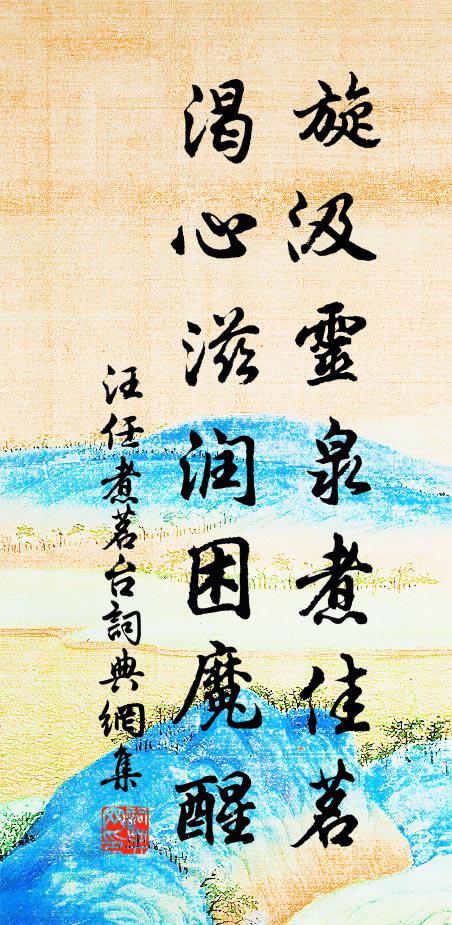 旋汲靈泉煮佳茗
渴心滋润困魔醒
汪任煮茗台詞典網集